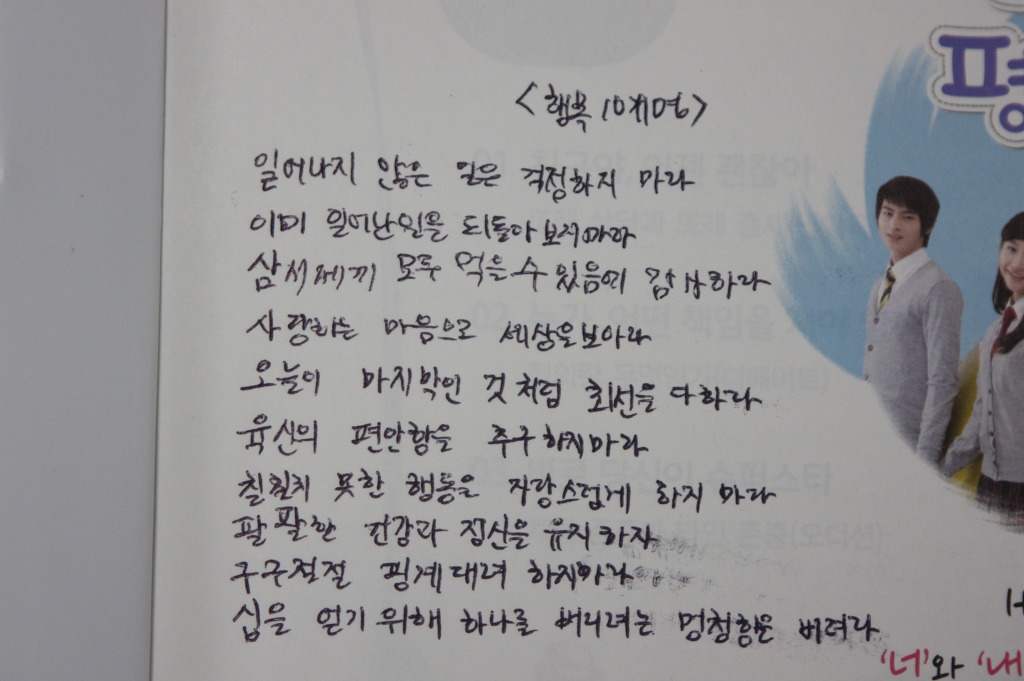 <행복 10계명>
일어나지 않은 일은 걱정하지 마라
이미 일어난일을 되돌아보지마라
삼시세끼 모두 먹을수 있음에 감사하라
사랑하는 마음으로 세상을보아라
오늘이 마지막인 것처럼 최선을 다하라
육신의 편안함을 추구하지마라
칠칠치 못한 행동을 자랑스럽게 하지 마라
팔팔한 건강과 정신을 유지하자
구구절절 핑계대려 하지마라
십을 얻기위해 하나를 버리려는 멍청함을 버려라
평
'너'와 '내